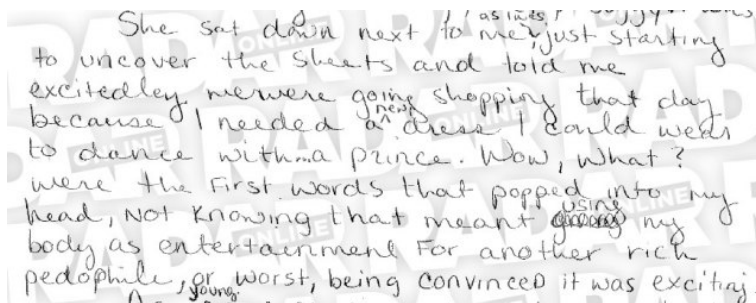 She sat down next to me, just starting
to uncover the sheets and told me
excitedley wewere going shopping that day
because I needed a new dress I could wear
to dance with a prince. Wow, what?
were the first words that popped into my
head, Not knowing that meant using my
body as entertainment For another rich
pedophile, or worst, being convinced it was exciting
young
RADAR ONLINE